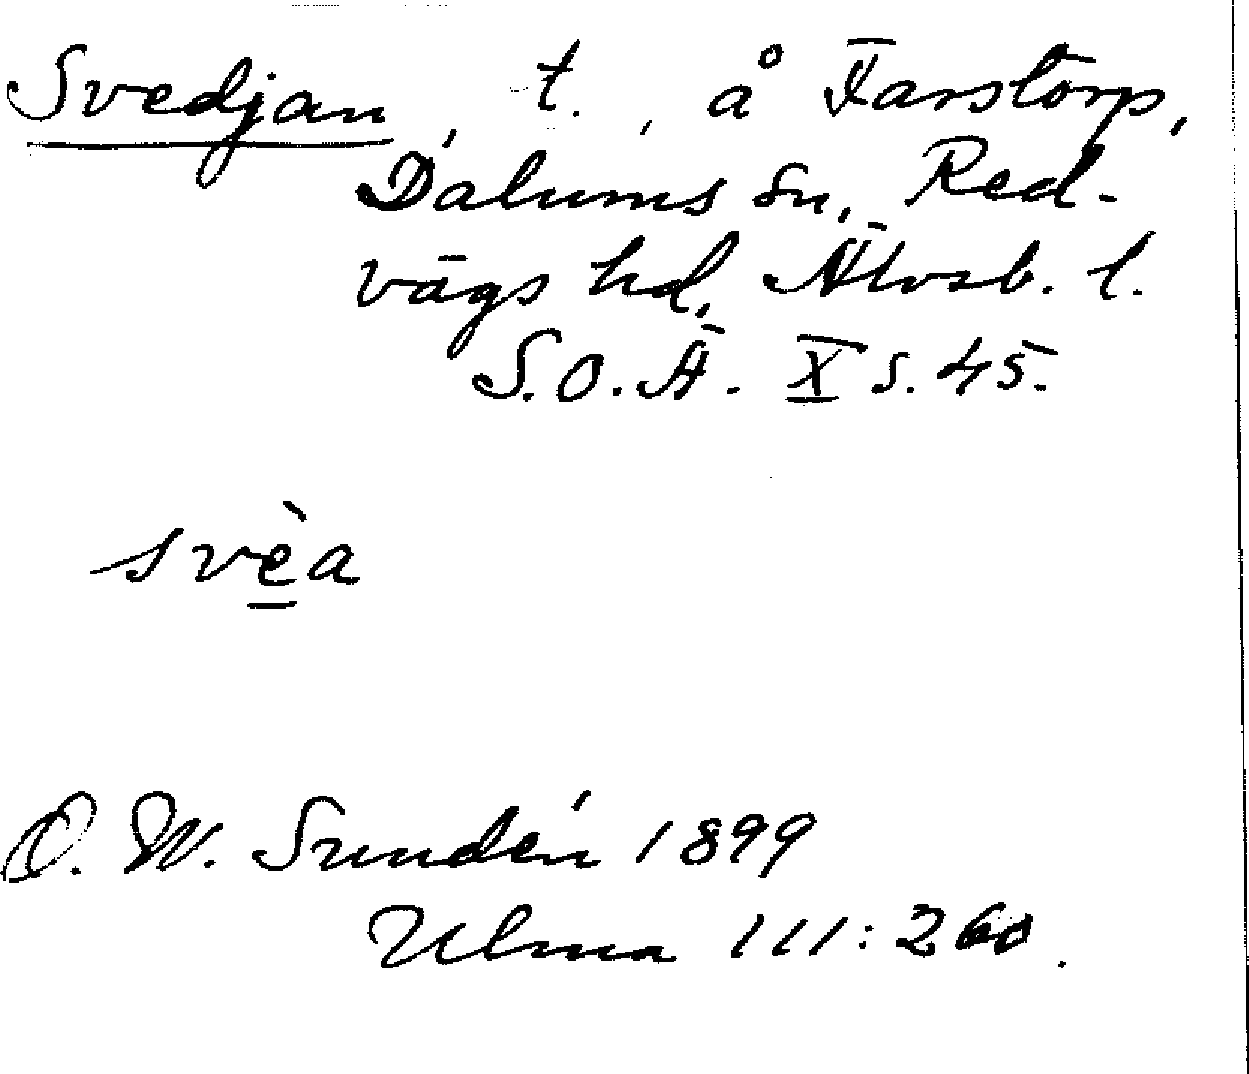 Svedjan, t., å Farstorp,
Dalums sn, Red-
vägs hd, Älvsb. l.
S.O.Ä. X s. 45.
svèa
D. W. Sundén 1899
Ulma 111:260.